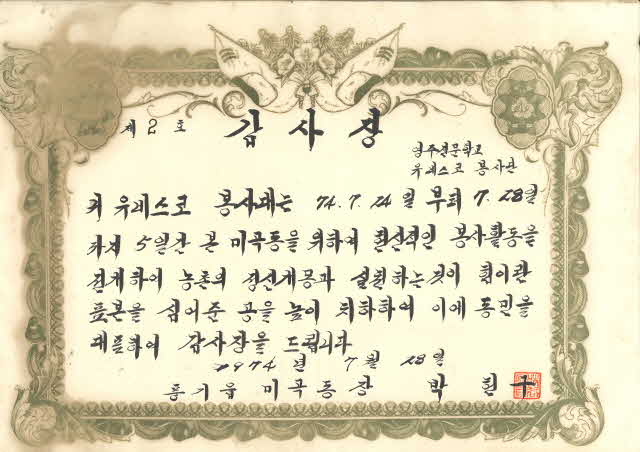 제 2 호
감 사 장
영주전문학교
유네스코 봉사단
귀 유네스코 봉사대는 74. 7. 24 일 부터 7. 28일
까지 5일간 본 미곡동을 위하여 헌신적인 봉사활동을
전개하여 농촌의 정신계몽과 실천하는것이 힘이란
표본을 심어준 공을 높이 치하하여 이에 동민을
대표하여 감사장을 드립니다
1974 년 7 월 28 일
풍기읍 미곡동장 박 헌 구